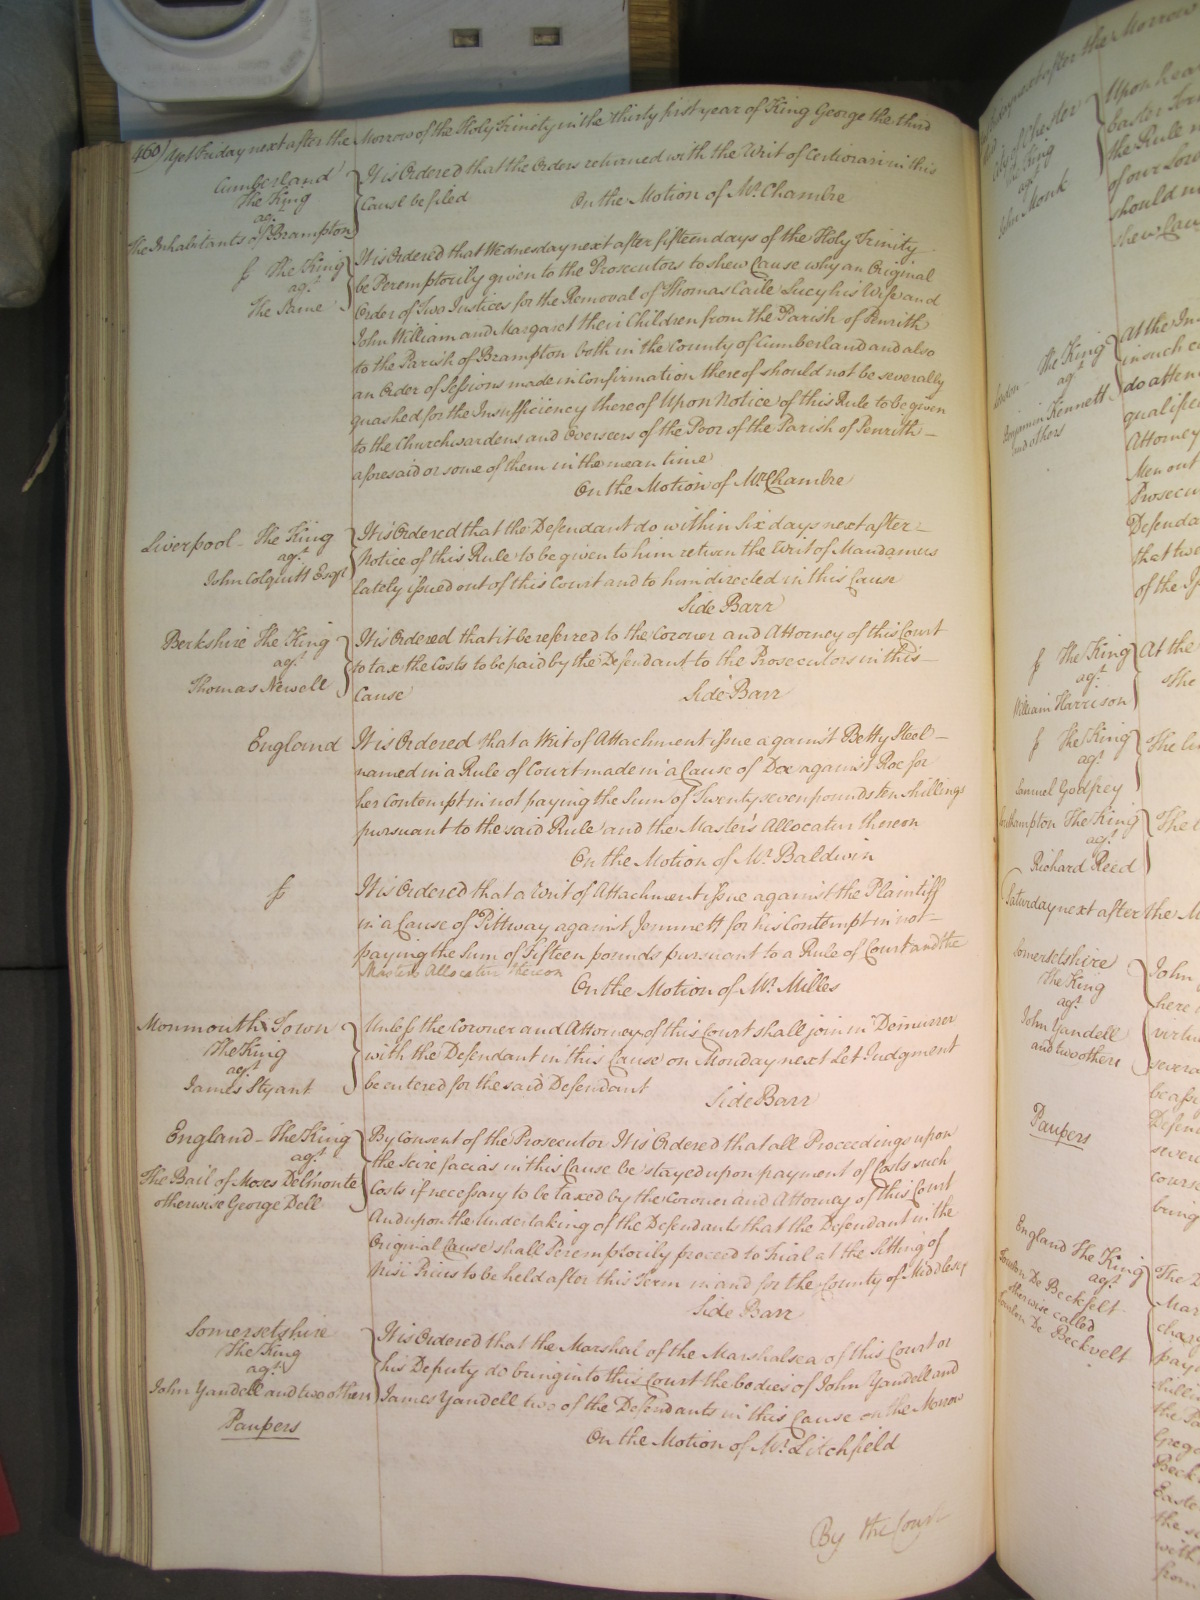 460/ Yet Friday next after the Morrow of the Holy Trinity in the thirty first year of King George the third
Cumberland
The King
agt
The Inhabitants of Brampton
It is Ordered that the Orders returned with the Writ of Certiorari in this
Cause be filed On the Motion of Mr. Chambre
The King
agt
The Same
It is Ordered that Wednesday next after fifteen days of the Holy Trinity
be Peremptorily given to the Prosecutors to shew Cause why an Original
Order of Two Justices for the Removal of Thomas Caile Lucy his Wife and
John William and Margaret their Children from the Parish of Penrith
to the Parish of Brampton both in the County of Cumberland and also
an Order of Sessions made in Confirmation thereof should not be severally
quashed for the Insufficiency thereof Upon Notice of this Rule to be given
to the Churchwardens and Overseers of the Poor of the Parish of Penrith
aforesaid or some of them in the mean time
On the Motion of Mr. Chambre
Liverpool - The King
agt
John Colquitt Esqr
It is Ordered that the Defendant do within Six days next after
Notice of this Rule to be given to him return the Writ of Mandamus
lately issued out of this Court and to him directed in this Cause
Side Barr
Berkshire The King
agt
Thomas Newell
It is Ordered that it be referred to the Coroner and Attorney of this Court
to tax the Costs to be paid by the Defendant to the Prosecutors in this
Cause Side Barr
England
It is Ordered that a Writ of Attachment issue against Betty Steel
named in a Rule of Court made in a Cause of Doe against Roe for
her Contempt in not paying the Sum of Twenty seven pounds ten shillings
pursuant to the said Rule and the Master's Allocatur thereon
On the Motion of Mr. Baldwin
It is Ordered that a Writ of Attachment issue against the Plaintiff
in a Cause of Pittway against Jemmett for his Contempt in not
paying the Sum of Fifteen pounds pursuant to a Rule of Court and the
Masters Allocatur thereon
On the Motion of Mr. Milles
Monmouth Town
The King
agt
James Styant
Unless the Coroner and Attorney of this Court shall join in Demurrer
with the Defendant in this Cause on Monday next Let Judgment
be entered for the said Defendant
Side Barr
England - The King
agt
The Bail of Moses Delmonte
otherwise George Dell
By Consent of the Prosecutor It is Ordered that all Proceedings upon
the Scire facias in this Cause be stayed upon payment of Costs such
Costs if necessary to be taxed by the Coroner and Attorney of this Court
And upon the Undertaking of the Defendants that the Defendant in the
Original Cause shall Peremptorily proceed to Trial at the Sitting of
Nisi Prius to be held after this Term in and for the County of Middlesex
Side Barr
Somersetshire
The King
agt
John Yandell and two others
Paupers
It is Ordered that the Marshal of the Marshalsea of this Court or
his Deputy do bring into this Court the bodies of John Yandell and
James Yandell two of the Defendants in this Cause on the Morrow
On the Motion of Mr. Litchfield
By the Court
next after the Morrow
City of Chester
The King
agt
John Monk
Upon hea
Easter
the Rule
of our
should
shew Cau
London - The King
agt
Benjamin Kennett
and others
At the In
in such
do atten
qualifie
Attorney
Men out
Prosecu
Defenda
that twe
of the
The King
agt
William Harrison
At the
The
The King
agt
Samuel Godfrey
The
Southampton The King
agt
Richard Reed
The
Saturday next after the M
Somersetshire
The King
agt
John Yandell
and two others
Paupers
John
here
virtu
severa
be
Defen
severa
cours
bring
England The King
agt
Louton De Beckfelt
otherwise called
Louton De Beckvelt
The D
Mar
char
pay
shilli
the
Greg
Beck
Easte
the
with
from